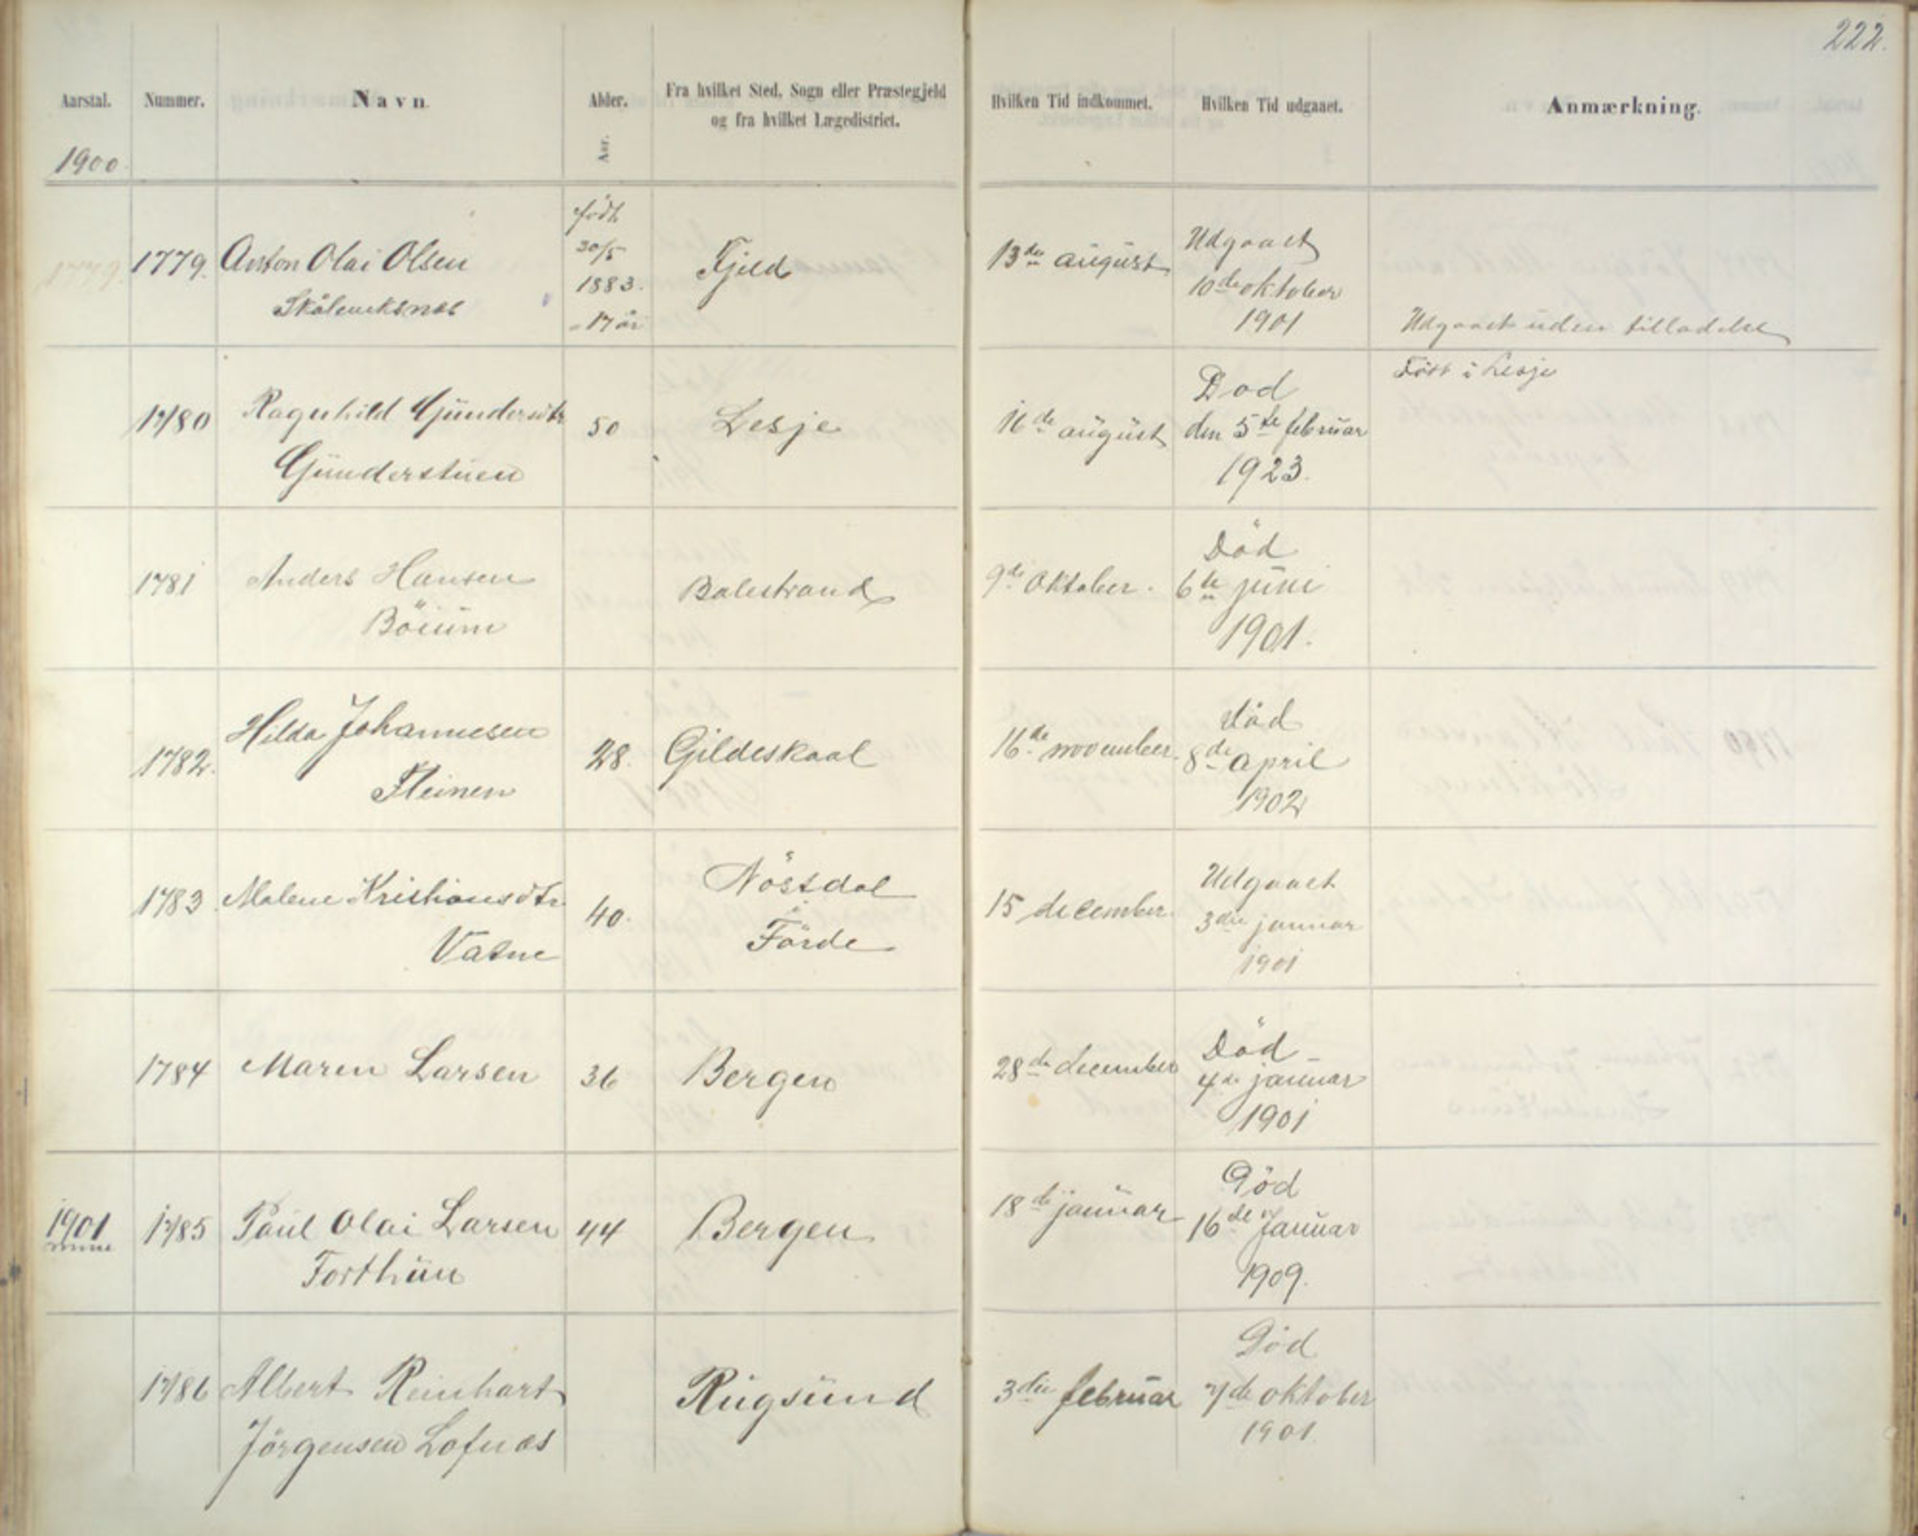 222.
Aarstal. Nummer. Navn. Alder. Fra hvilket Sted, Sogn eller Præstegjeld Hvilken Tid indkommet. Hvilken Tid udgaaet. Anmærkning.
og fra hvilket Lægedistrict.
Aar.
1900.
født
30/5
1883.
17 år
1779. Anton Olai Olsen Fjeld 13de august Udgaaet
10de oktober
1901 Udgaaet uden tilladelse
1780 Ragnhild Gundersdtr 50 Lesje 16de august Død Født i Lesje
Gunderstuen den 5te februar
1923.
1781 Anders Hansen Balestrand 9de Oktober. Död
Böium 6te juni
1901.
1782. Hilda Johannesen 28. Gildeskaal 16de november. död
Fleinen 8de april
1902
1783. Malene Kristiansdtr. 40. Nöstdal 15 december. Udgaaet
Vatne Förde 3die januar
1901
1784 Maren Larsen 36 Bergen 28de december Död
4de januar
1901
1901 1785 Paul Olai Larsen 44 Bergen 18de januar Död
Forthun 16de Januar
1909.
1786 Albert Reinhart Rugsund 3die februar Död
Jörgensen Lofnæs 7de oktober
1901.